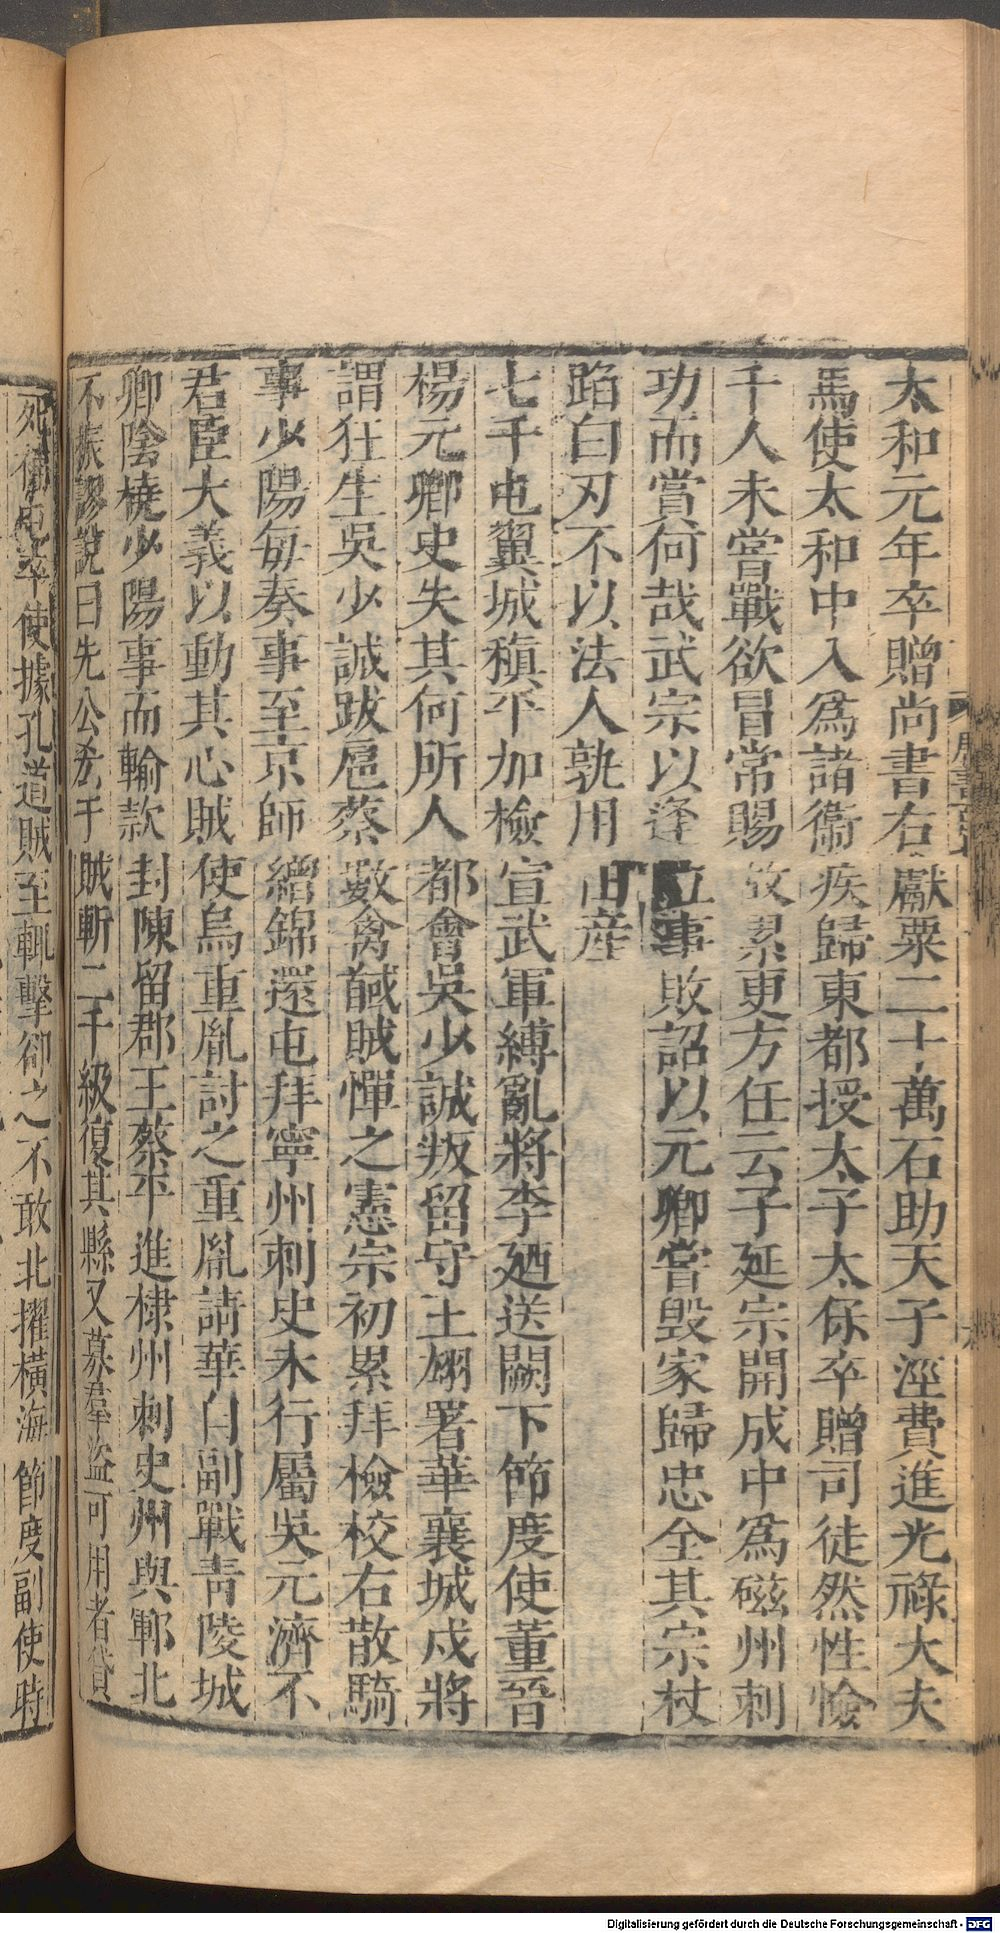 太和元年卒贈尚書右獻粟二十萬石助天子涇費進光祿大夫
馬使太和中入爲諸衞疾歸東都授太子太保卒贈司徒然性憸
千人未嘗戰欲冒常賜故累更方任云子延宗開成中爲磁州刺
功而賞何哉武宗以逢立事敗詔以元卿嘗毀家歸忠全其宗杖
蹈白刃不以法人孰用田産
七千屯翼城稹平加檢宣武軍縛亂將李廼送闕下節度使董晉
楊元卿史失其何所人都會吳少誠叛留守王翃署華襄城戍將
謂狂生吳少誠跋扈蔡數禽馘賊憚之憲宗初累拜檢校右散騎
事少陽每奏事至京師繒錦還屯拜寧州刺史未行屬吳元濟不
君臣大義以動其心賊使烏重胤討之重胤請華自副戰青陵城
卿陰橈少陽事而輸款封陳留郡王蔡平進棣州刺史州與鄆北
不振謬說曰先公于賊斬二千級復其縣又募羣盜可用者貸
死俾屯卒使據孔道賊至輒擊卻之不敢北擢橫海節度副使時
Digitalisierung gefördert durch die Deutsche Forschungsgemeinschaft - DFG